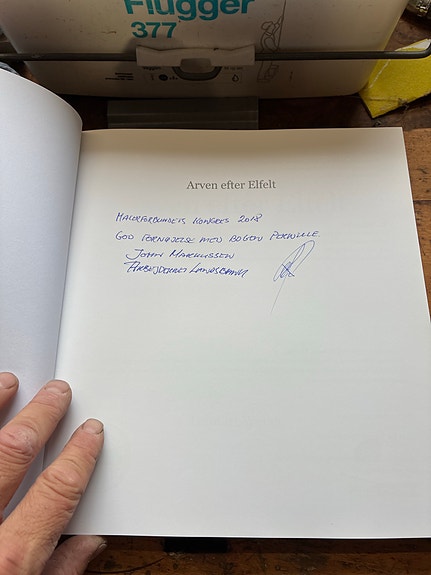 Flügger
377
Arven efter Elfelt
MALERFORBUNDETS KONGRES 2018
GOD FORNØJELSE MED BOGEN PERNILLE
JOHN MARKUSSEN
ARBEJDERNES LANDSBANK